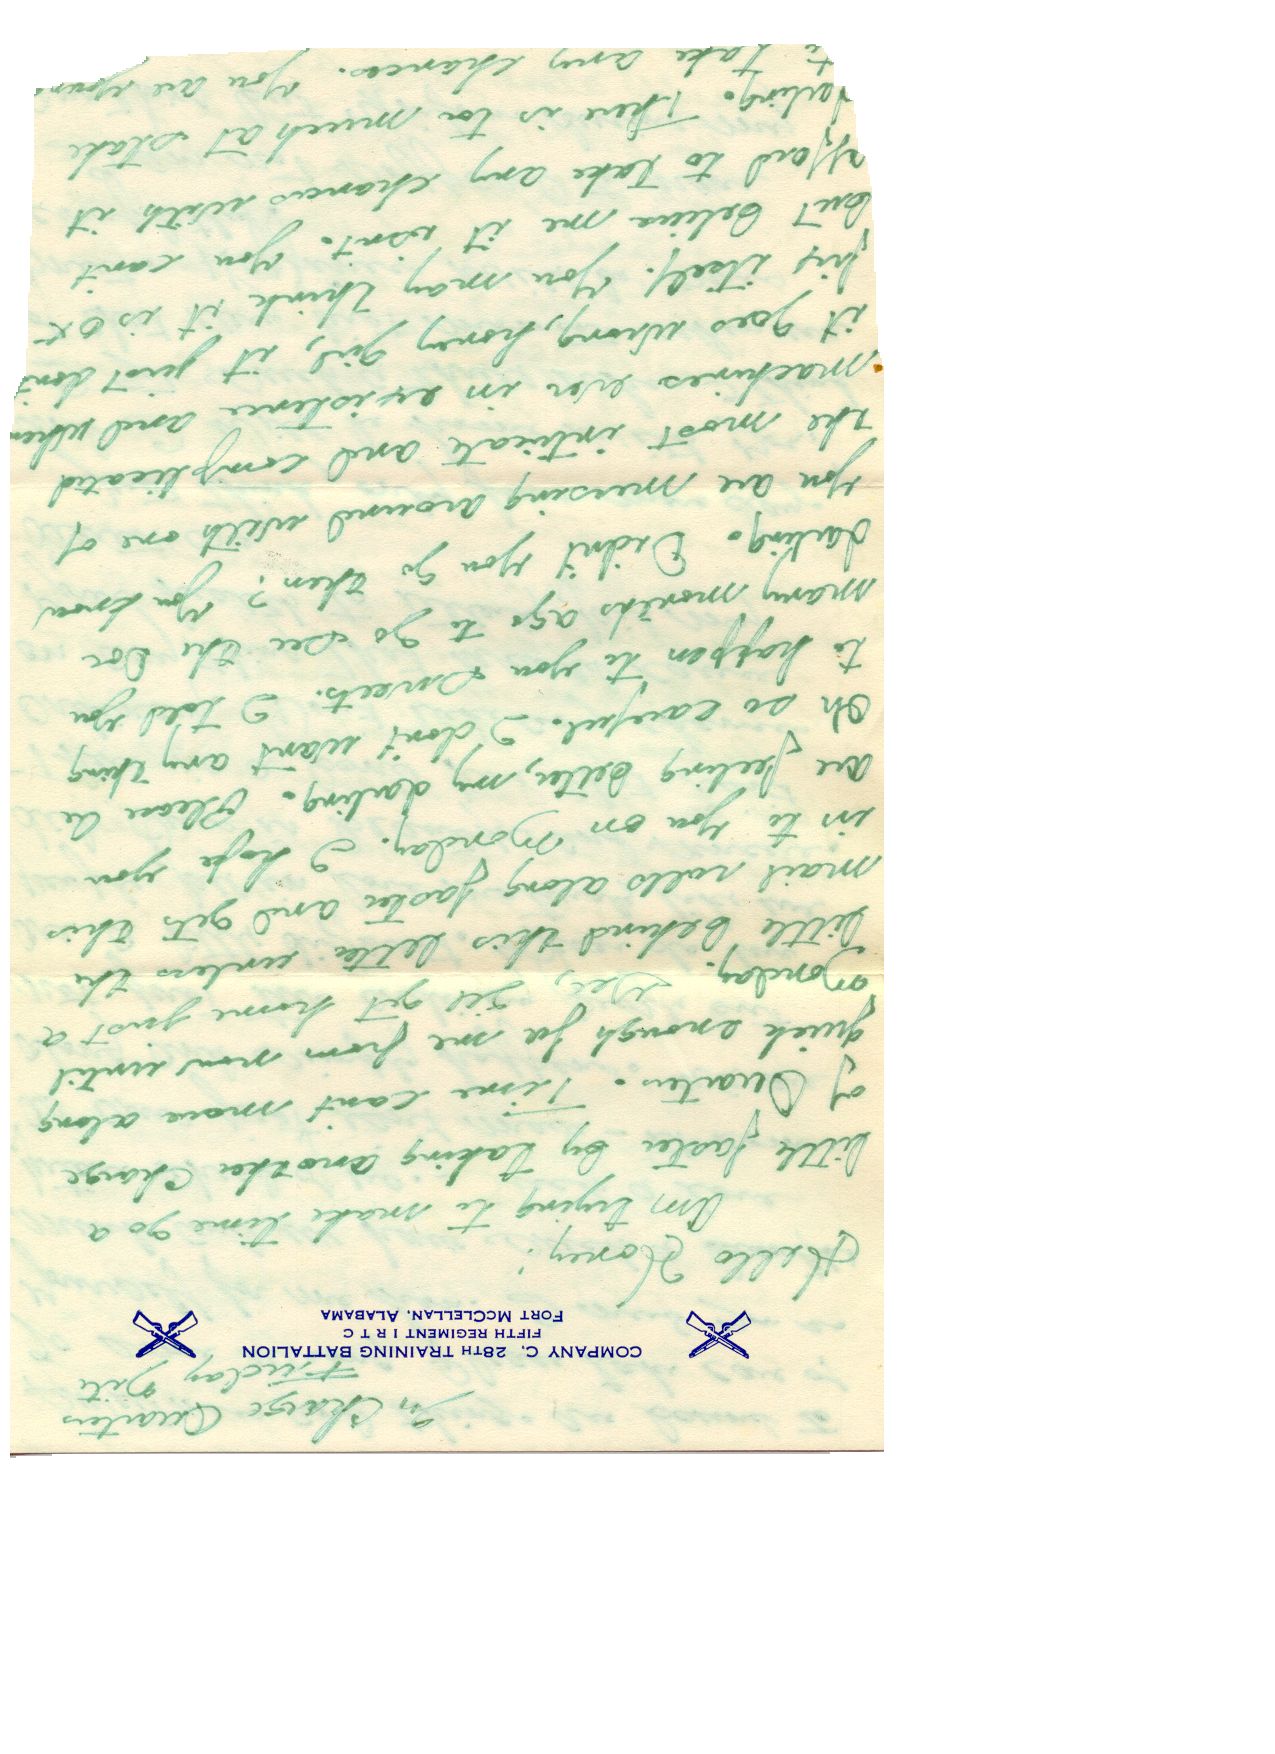 In Charge Quarters
Friday Nite
COMPANY C, 28TH TRAINING BATTALION
FIFTH REGIMENT I R T C
FORT MCCLELLAN, ALABAMA
Hello Honey!
Am trying to make time go a
little faster by taking another Charge
of Quarters. Time can't move along
quick enough for me from now until
Monday. Gee, I'll get home just a
little behind this letter unless the
mail rolls along faster and gets this
in to you on Monday. I hope you
are feeling better, my darling. Please be
Oh so careful. I don't want any thing
to happen to you Sweets. I told you
many months ago to go see the Doc
darling. Didn't you go then? You know
you are messing around with one of
the most intricate and complicated
machines ever in existence and when
it goes wrong, honey girl, it just don't
fix itself. You may think it is OK
but believe me it isn't. You can't
afford to take any chances with it
darling. There is too much at stake
to take any chances. You are your